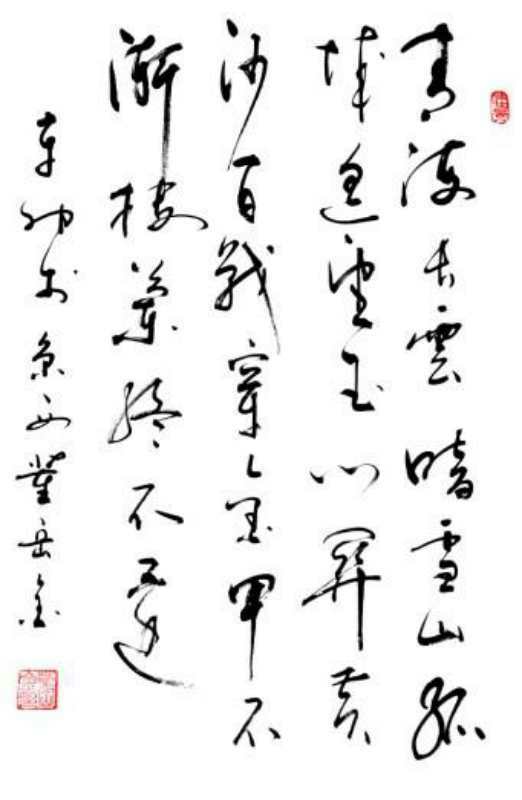 青海長雲暗雪山孤
城遥望玉門關黄
沙百戰穿金甲不
斬樓蘭終不還
辛卯於京西岳金